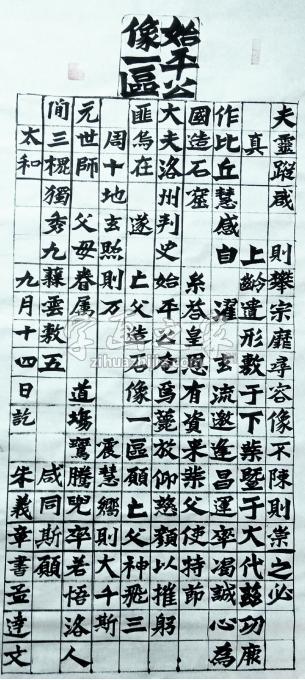 始平公
像一區
夫靈蹤咸 則攀宗靡尋容像不陳則崇之必
真 上齡遺形敷于下葉暨于大代茲功厥
作比丘慧感自 濯玄流邀逢昌運率渴誠心為
國造石窟 糸荅皇恩有資来葉父使持節
大夫洛州刺史始平公爲薨放仰慈顔以摧躬
匪烏在 遂 亡父造石像一區願亡父神飛三
周十地玄照則万 震慧嚮則大千斯
元世師 父母眷属 道塲鸞騰兜率若悟洛人
間三槐獨秀九蕀雲敷五 咸同斯願
太和 九月十四日訖 朱義章書孟達文